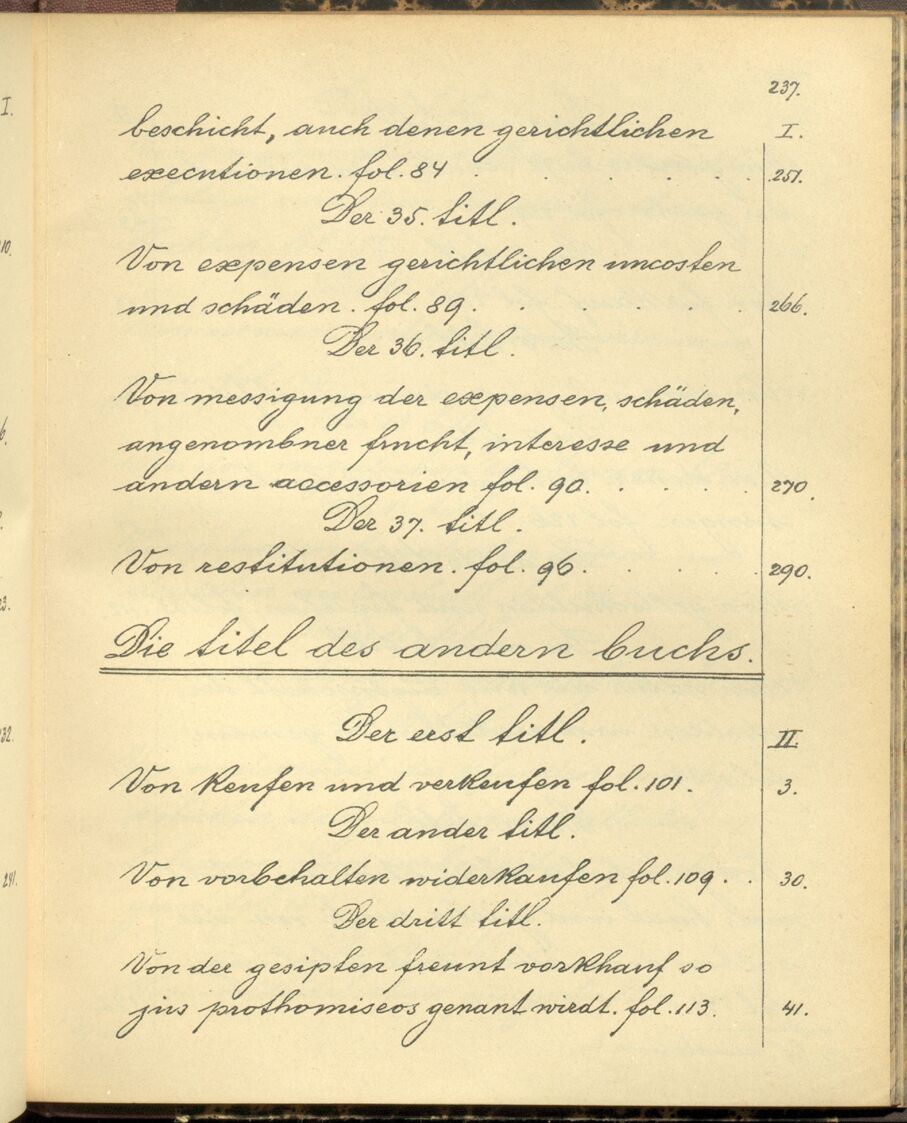 237.
beschicht, auch denen gerichtlichen I.
executionen. fol. 84 . . . . . . 251.
Der 35. titl.
Von expensen gerichtlichen uncosten
und schäden. fol. 89. . . . . . . 266.
Der 36. titl.
Von messigung der expensen, schäden,
angenombner frucht, interesse und
andern accessorien fol. 90. . . . . . 270.
Der 37. titl.
Von restitutionen. fol. 96. . . . . 290.
Die titel des andern buchs.
Der erst titl. II.
Von Keufen und verKeufen fol. 101. 3.
Der ander titl.
Von vorbehalten widerKaufen fol. 109. . 30.
Der dritt titl.
Von der gesipten freunt vorKhauf so
jus prothomiseos genant wirdt. fol. 113. 41.